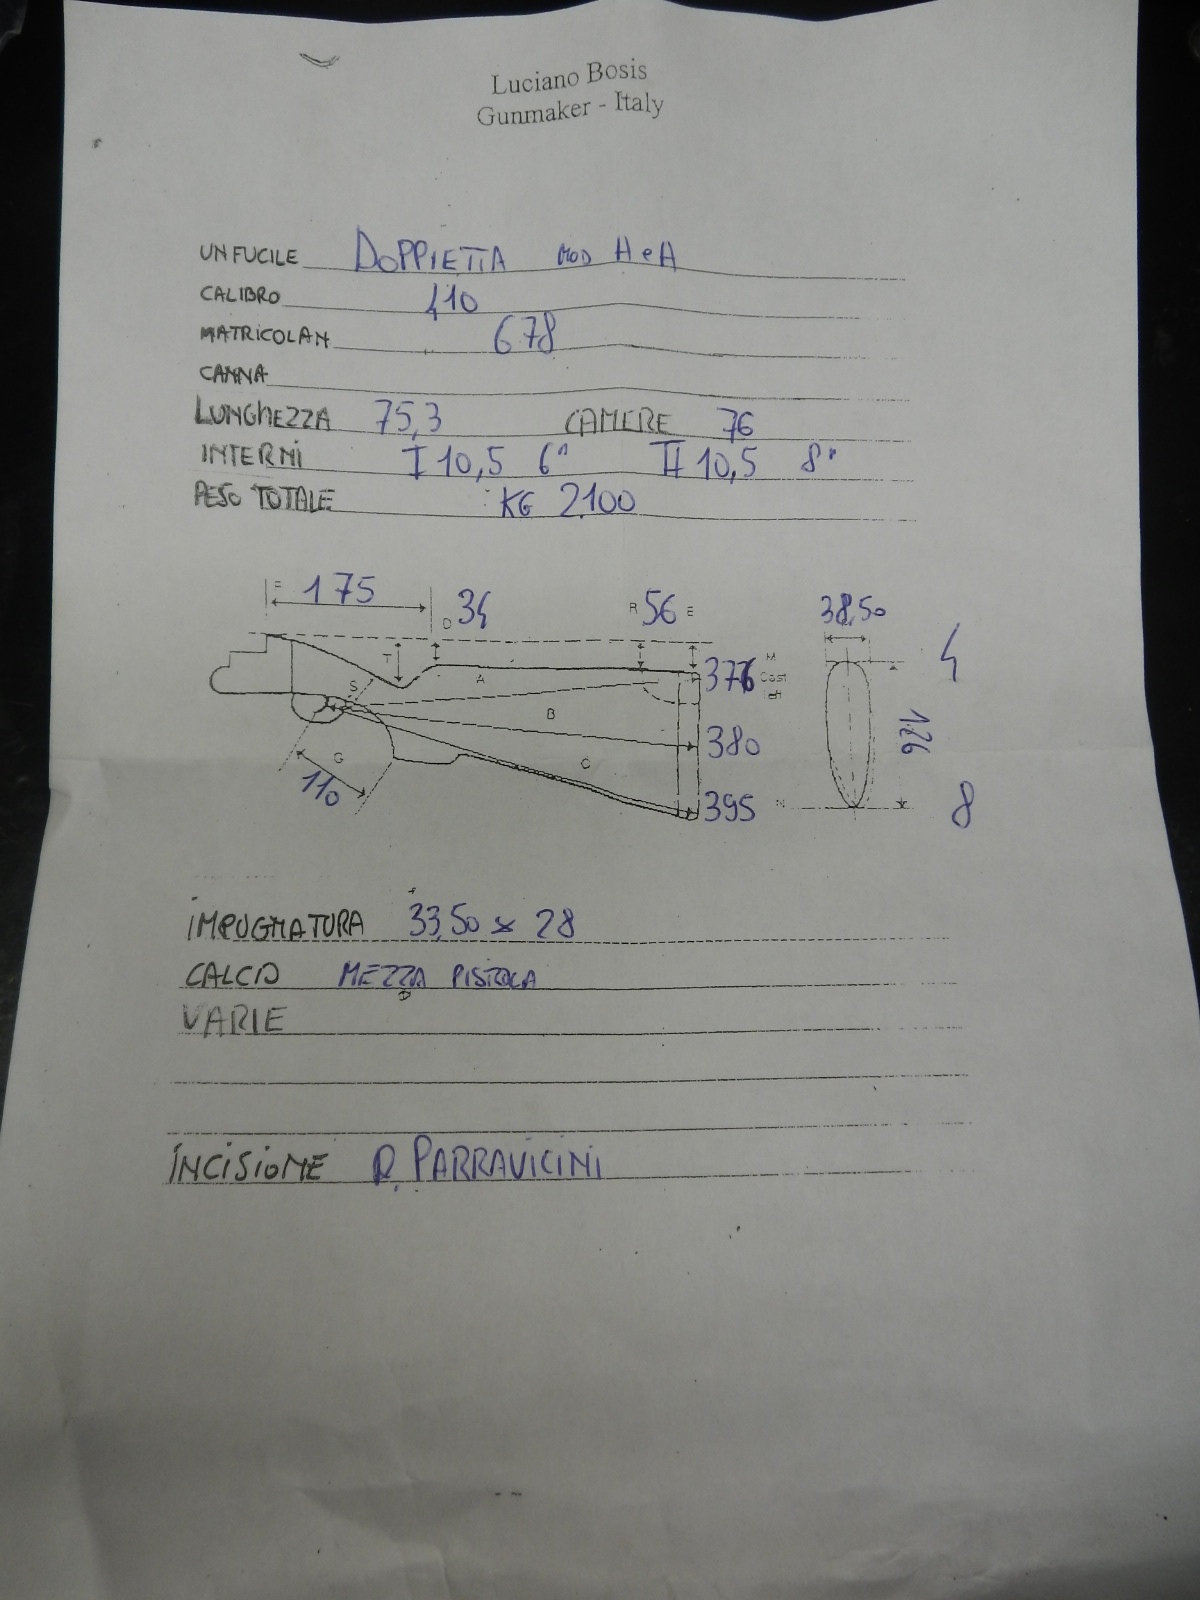 Luciano Bosis
Gunmaker - Italy
UN FUCILE DOPPIETTA MOD H e H
CALIBRO 410
MATRICOLA N 678
CANNA
LUNGHEZZA 75,3 CAMERE 76
INTERNI I 10,5 6" II 10,5 8"
PESO TOTALE KG 2.100
F 175 D 34 R 56 E 38,50
T A S B C G
376 M Cast Left 4
380 126
110 395 N 8
IMPUGNATURA 33,50 x 28
CALCIO MEZZA PISTOLA
VARIE
INCISIONE D. PARRAVICINI